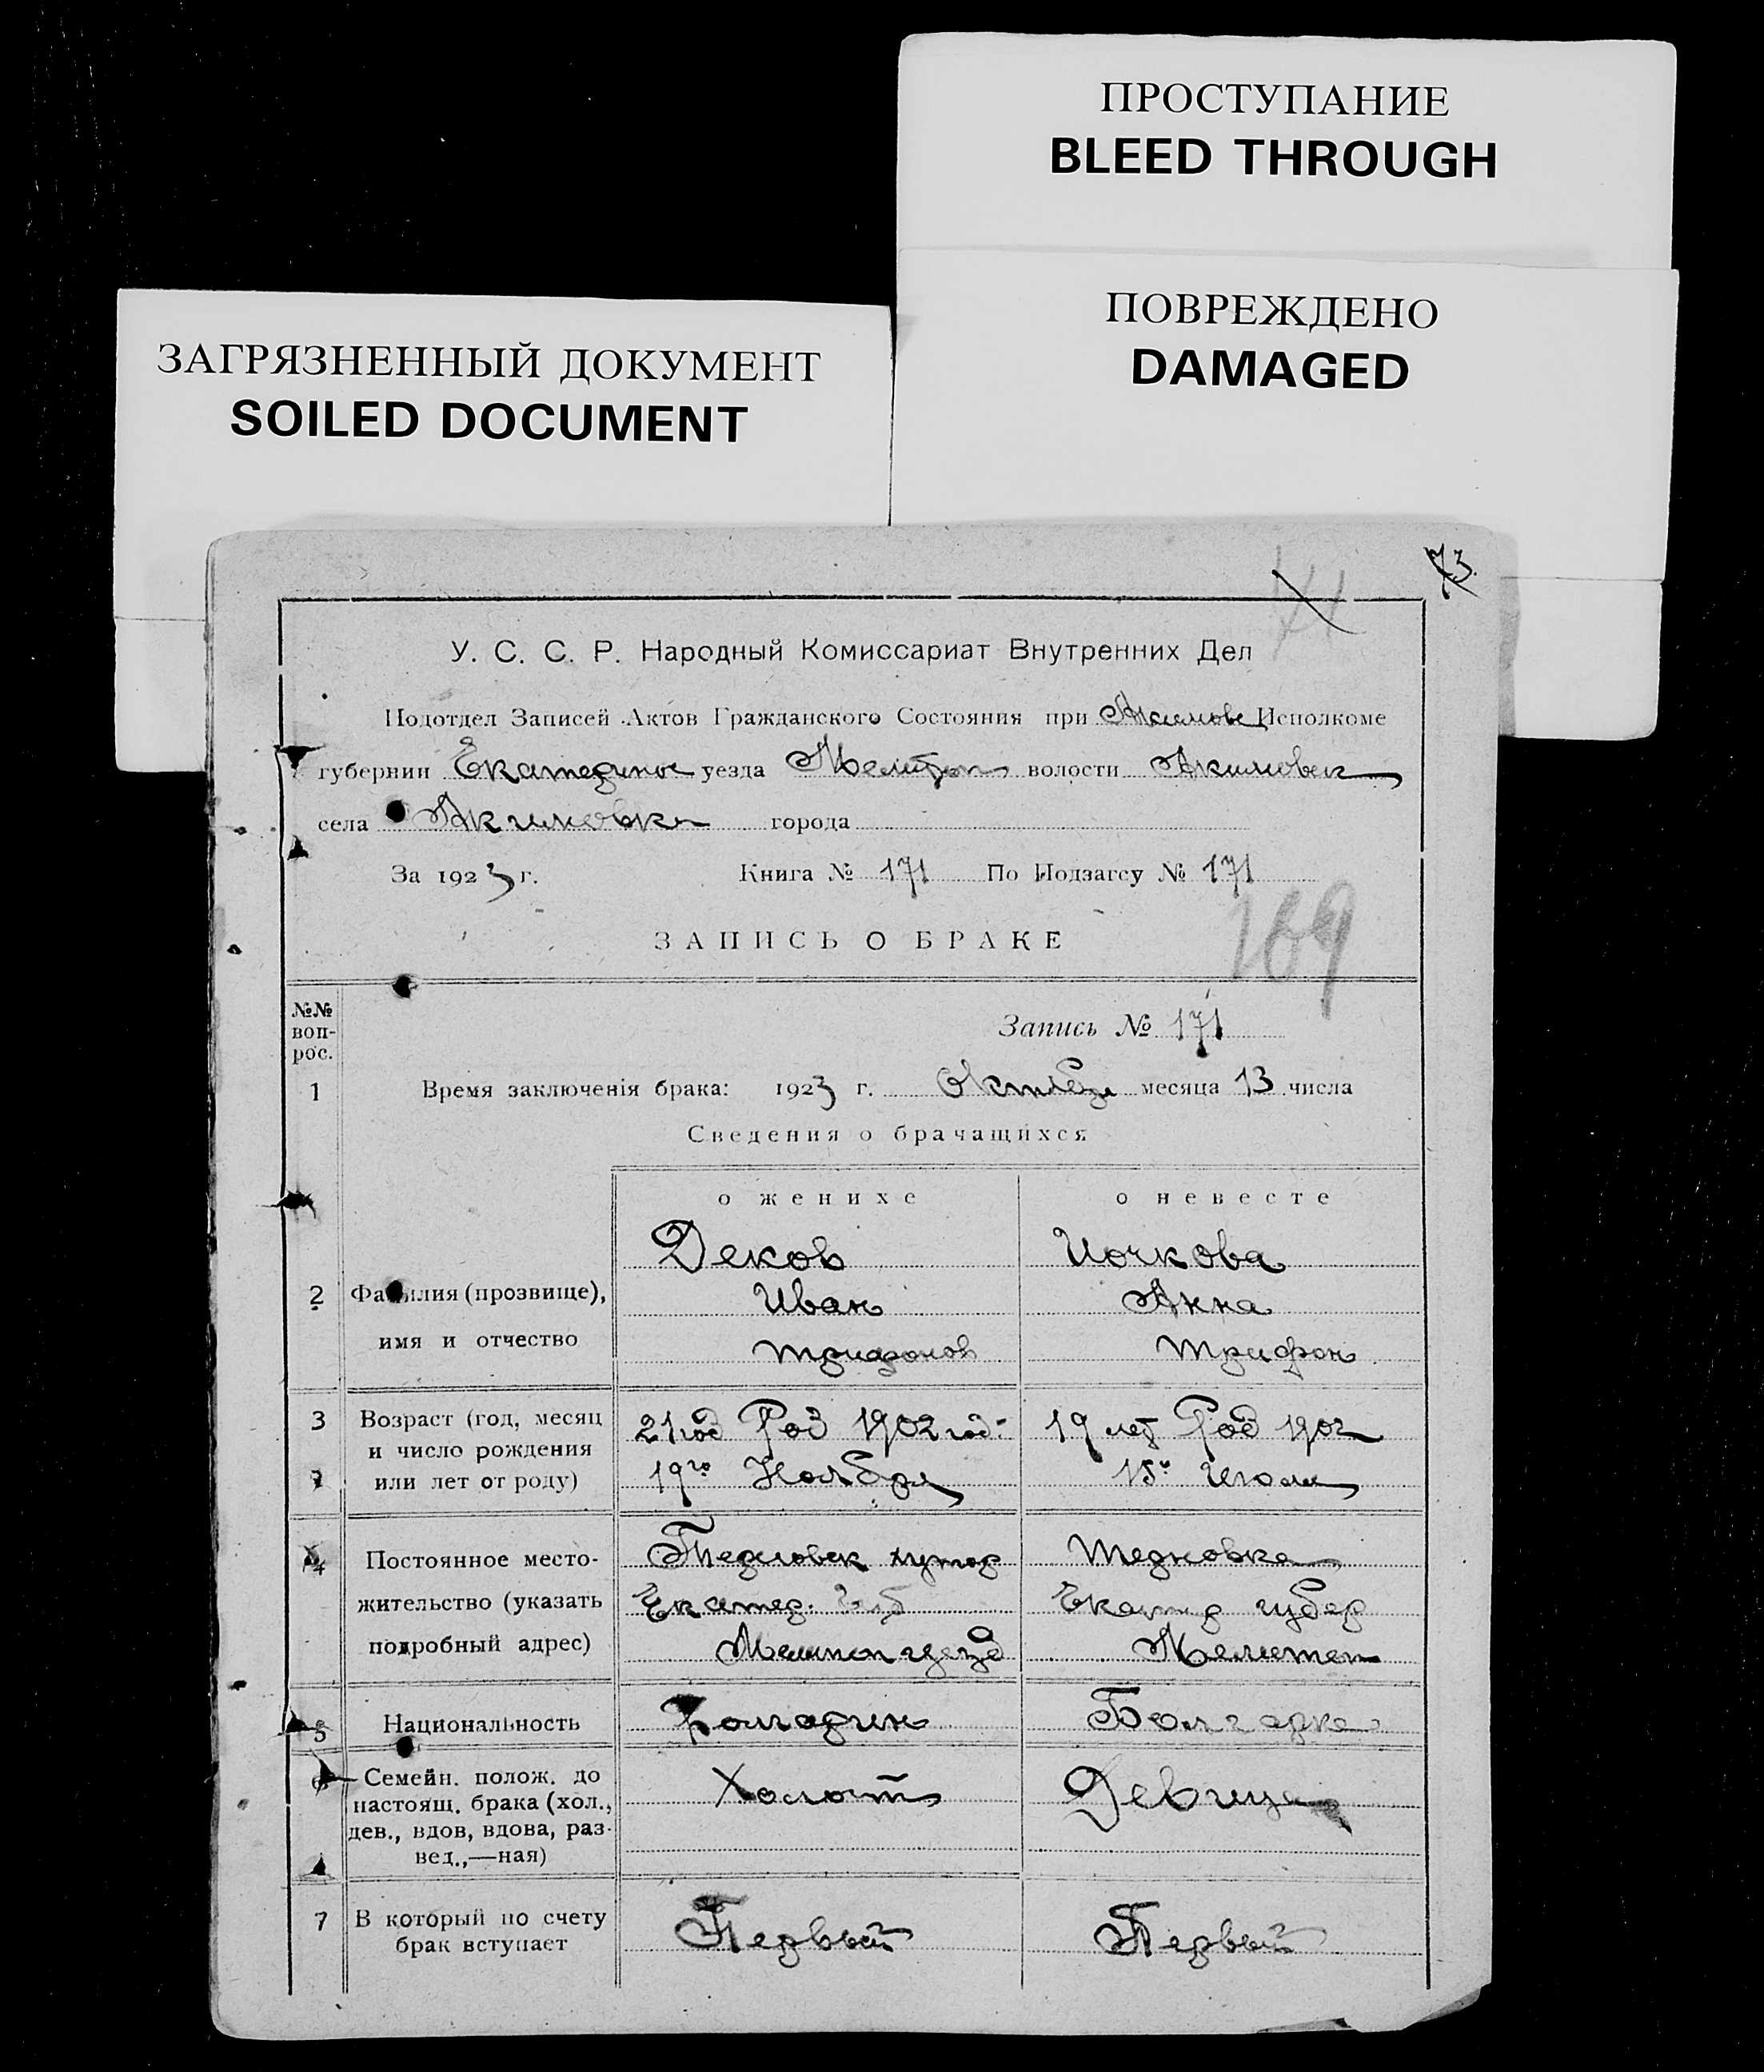 ПРОСТУПАНИЕ
BLEED THROUGH
ПОВРЕЖДЕНО
DAMAGED
ЗАГРЯЗНЕННЫЙ ДОКУМЕНТ
SOILED DOCUMENT
73.
У. С. С. Р. Народный Комиссариат Внутренних Дел
Подотдел Записей Актов Гражданского Состояния при Акимовс Исполкоме
губернии Екатеринос уезда Мелитоп волости Акимовск
села Акимовка города
За 1923 г. Книга № 171 По Подзагсу № 171
169
ЗАПИСЬ О БРАКЕ
№№ воп-
рос.
Запись № 171
1 Время заключенія брака: 1923 г. Октября месяца 13 числа
Сведения о брачащихся
о женихе о невесте
Деков Иочкова
2 Фамилия (прозвище), Иван Анна
имя и отчество Трифонов Трифон
3 Возраст (год, месяц 21 год Род 1902 год. 19 лет Род 1902
и число рождения
или лет от роду) 19го Ноября 15го Июля
4 Постоянное место- хутор
жительство (указать Екатер. Губ Екатер губер
подробный адрес) Мелитоп уезд Мелитоп
5 Национальность Болгарин Болгарка
6 Семейн. полож. до Холост Девица
настоящ. брака (хол.,
дев., вдов, вдова, раз-
вед.,—ная)
7 В который по счету Первый Первый
брак вступает